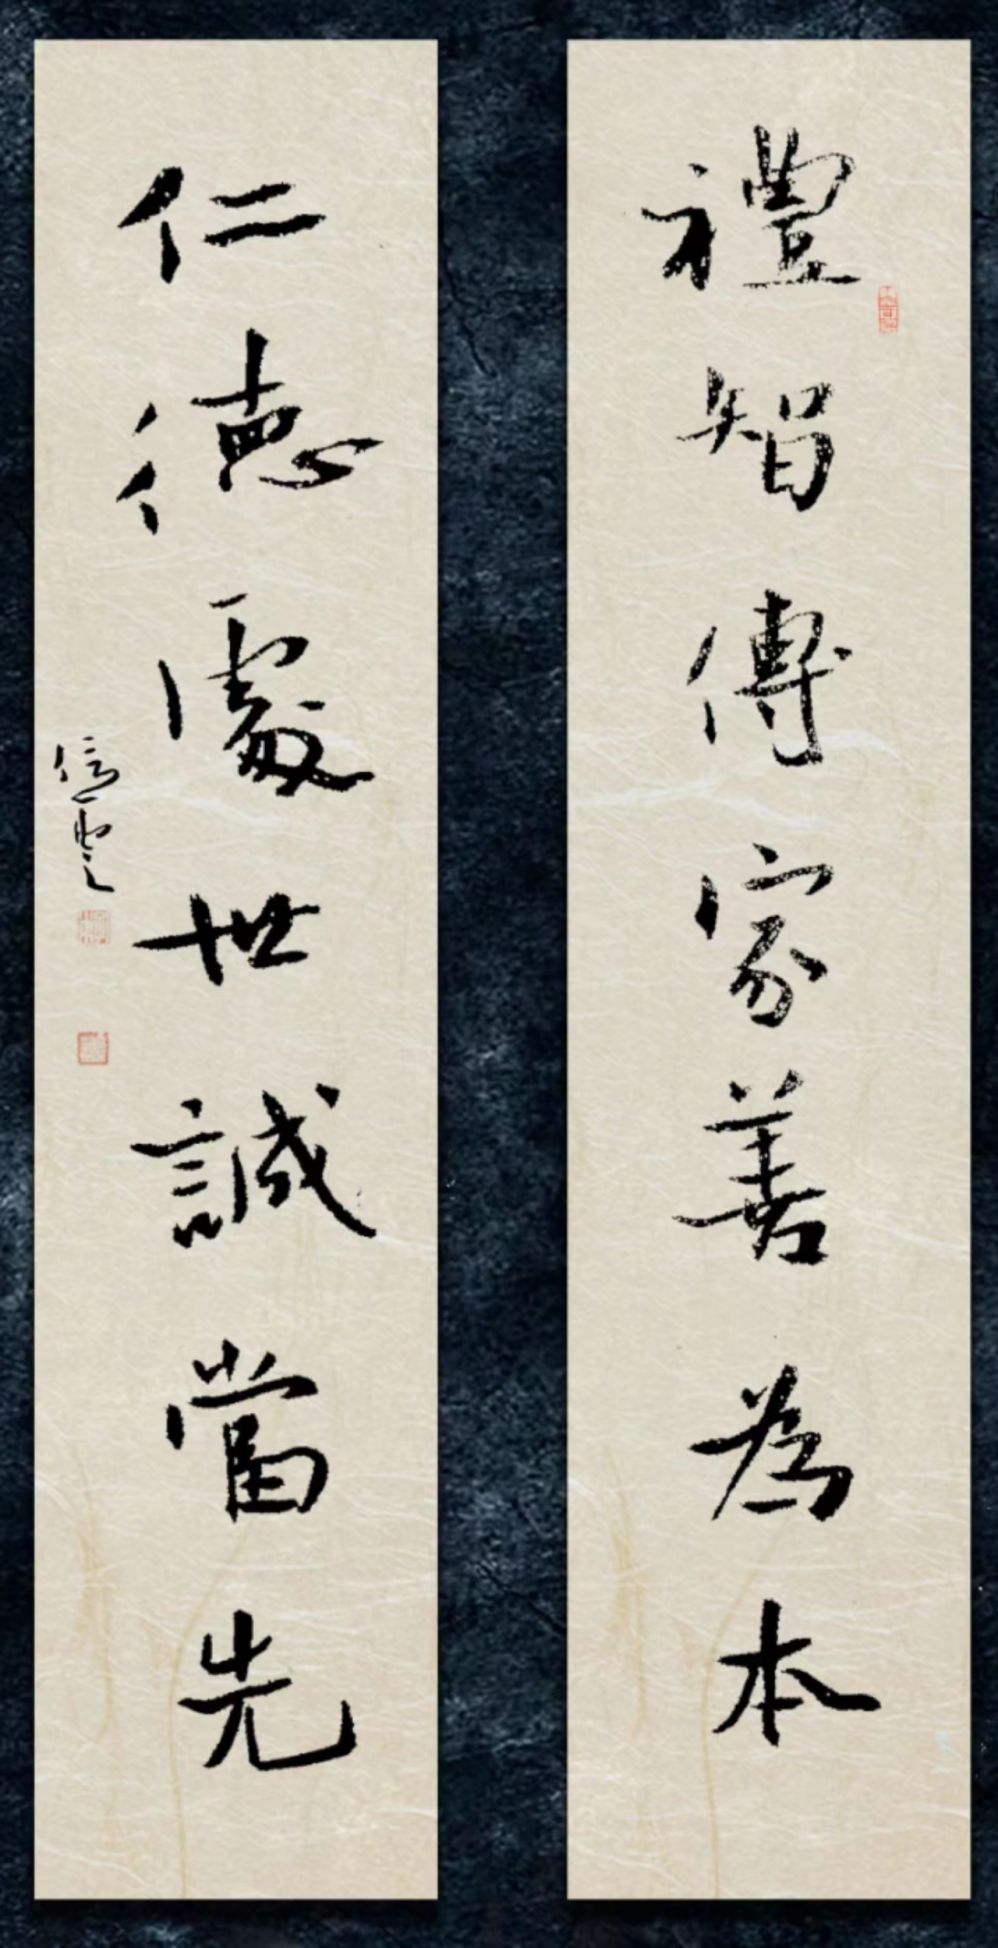 禮智傳家善為本
仁德處世誠當先